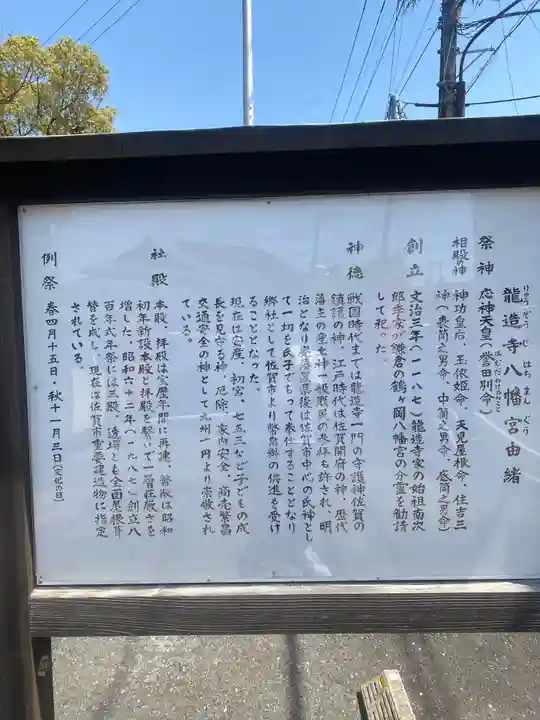 龍造寺八幡宮由緒
りゅうぞうじはちまんぐう
祭神 応神天皇(誉田別命)
ほむだわけのみこと
相殿の神 神功皇后、玉依姫命、天見屋根命、住吉三
神(表筒之男命、中筒之男命、底筒之男命)
創立 文治三年(一一八七)龍造寺家の始祖南次
郎季家が鎌倉の鶴ヶ岡八幡宮の分霊を勧請
して祀った。
神徳 戦国時代までは龍造寺一門の守護神佐賀の
鎮護の神、江戸時代は佐賀開府の神、歴代
藩主の産土神一般庶民の参拝も許され、明
治となり廃藩置県後は佐賀市中心の氏神とし
て一切を氏子でもって奉仕することとなり
郷社として佐賀市より幣帛料の供進を受け
ることとなった。
現在は安産、初宮、七五三など子どもの成
長を見守る神、厄除、家内安全、商売繁昌
交通安全の神として九州一円より崇敬され
ている。
社殿 本殿、拝殿は宝歴年間に再建、幣殿は昭和
初年新設本殿と拝殿を繋いで一層荘厳さを
増した。昭和六十二年(一九八七)創立八
百年式年祭には三殿、透塀とも全面屋根葺
替を成し、現在は佐賀市重要建造物に指定
されている。
例祭 春四月十五日・秋十一月三日(文化の日)